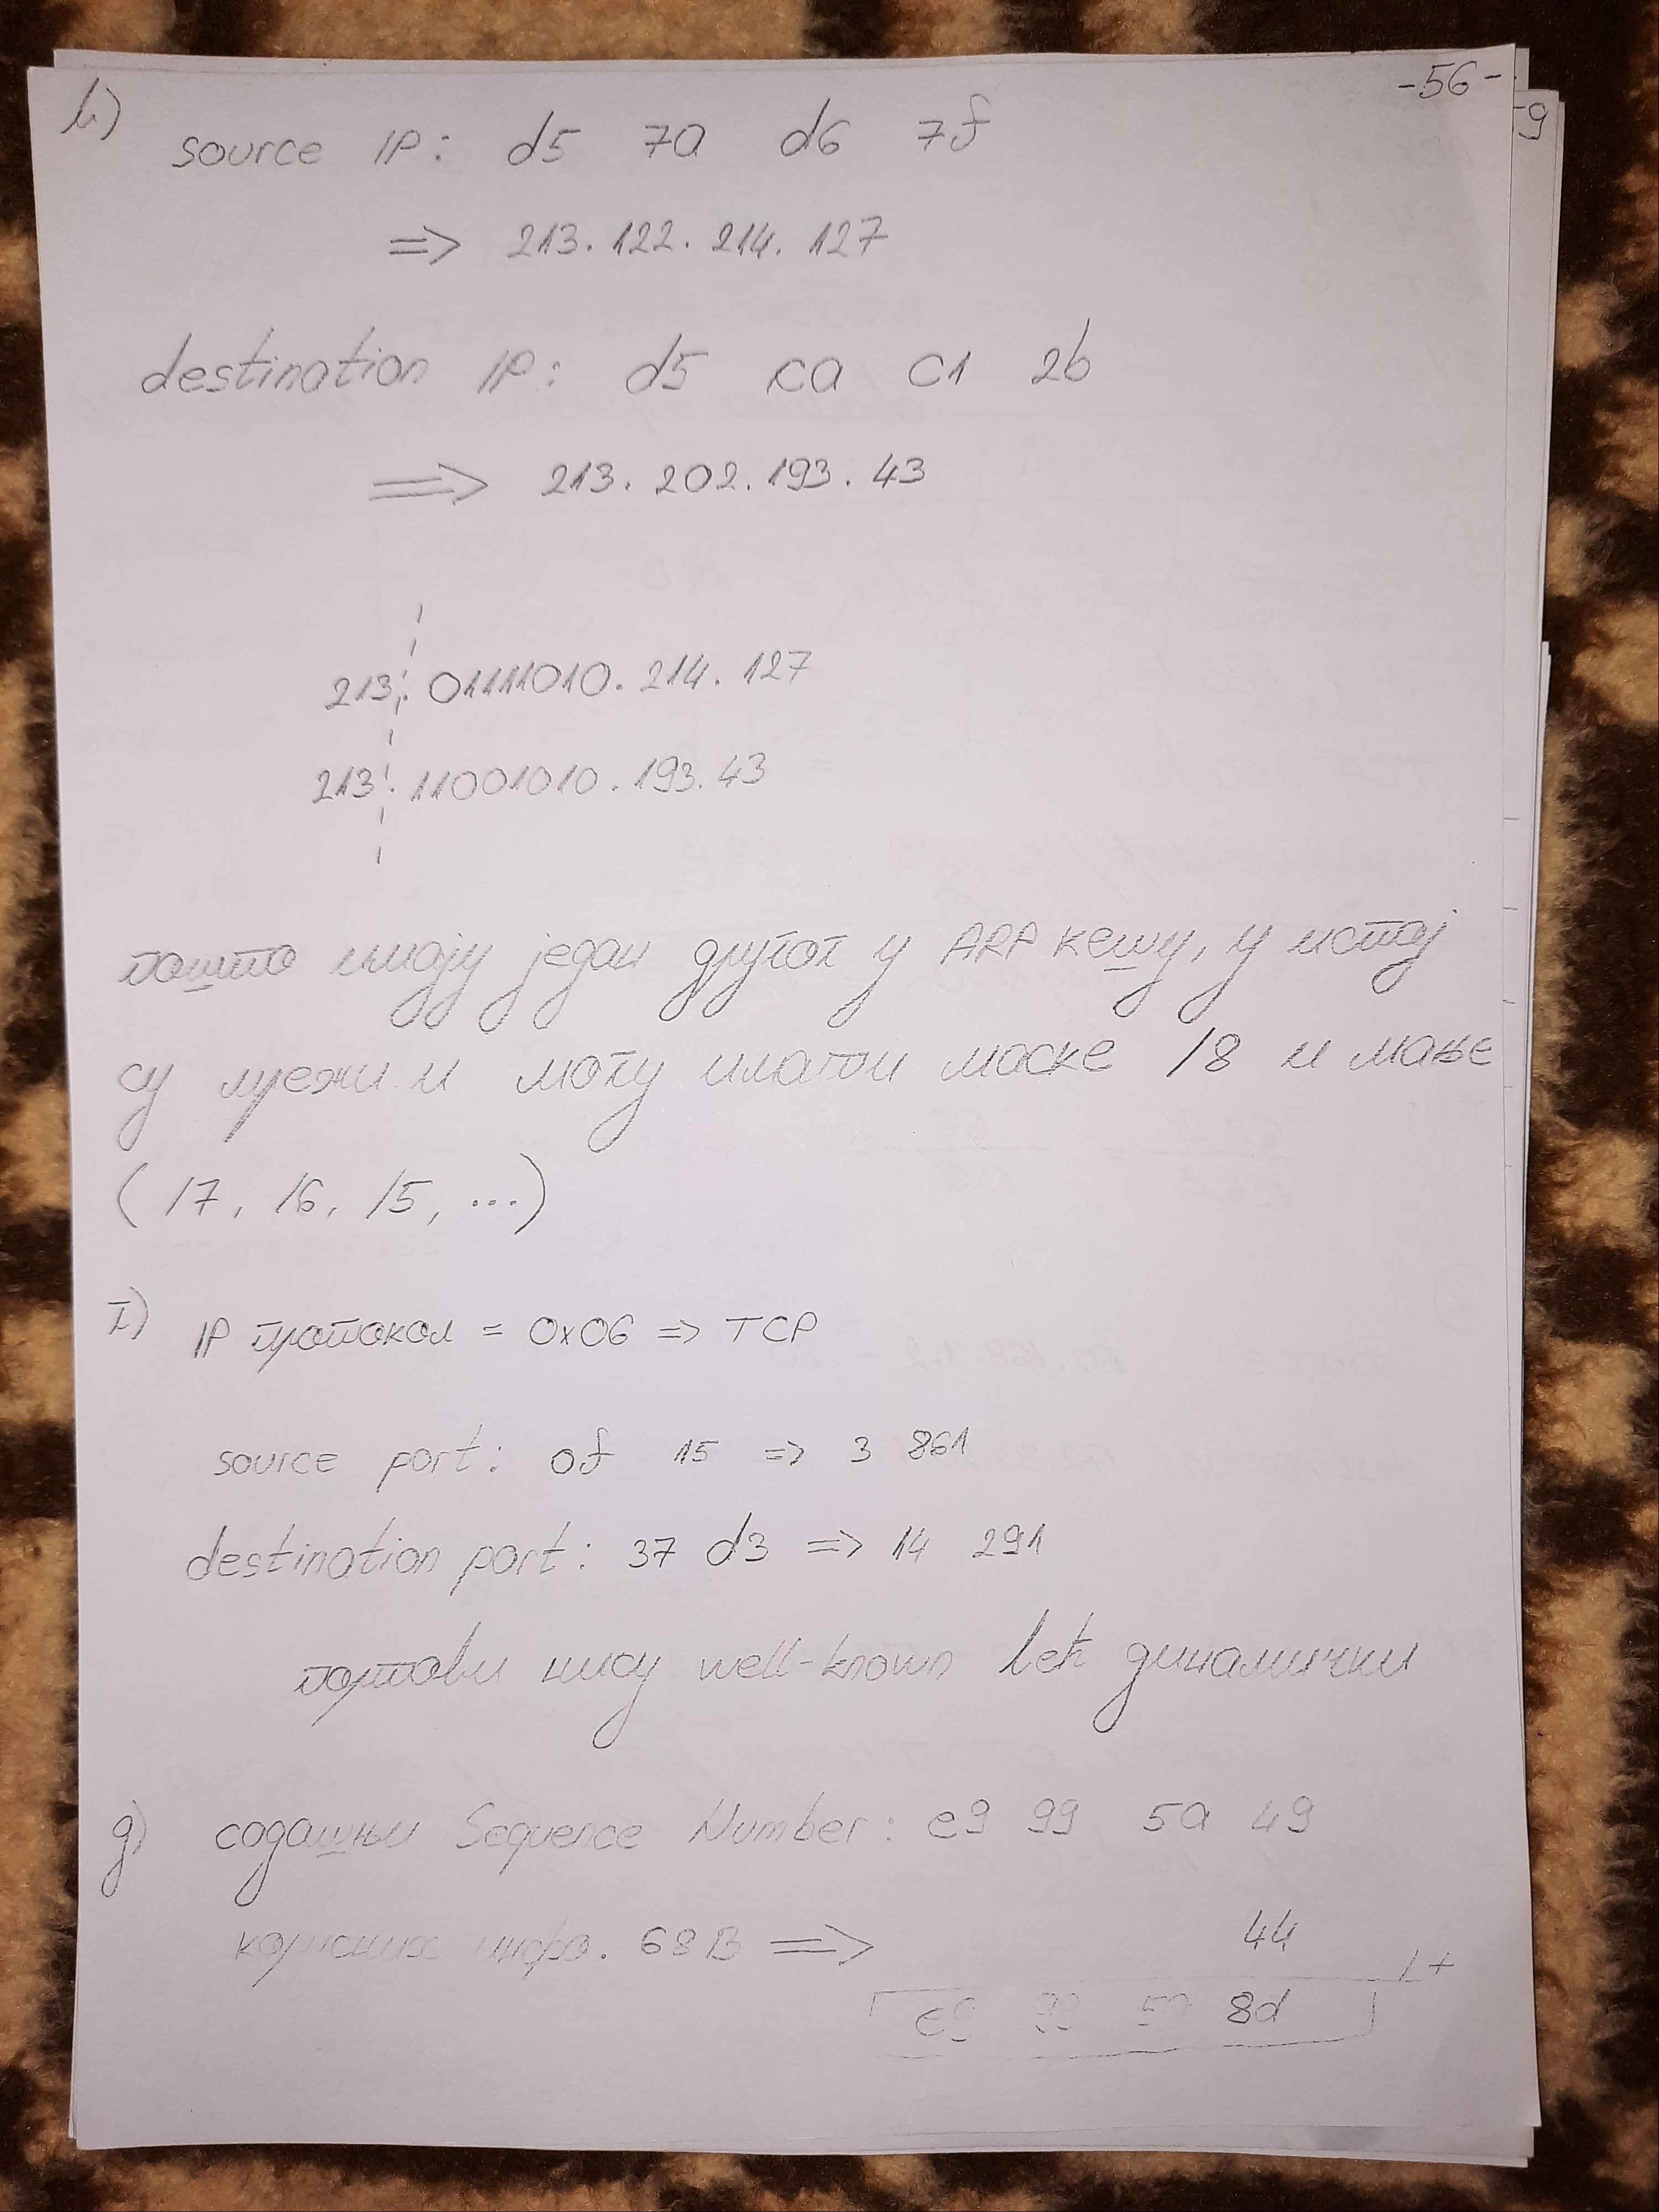 -56-
-9
в)
source IP: d5 7a d6 7f
=> 213.122.214.127
destination IP: d5 ca c1 2b
=> 213.202.193.43
213.01111010.214.127
213.11001010.193.43
пошто имају један другог у ARP кешу, у истој
су мрежи и могу имати маске /8 и мање
(/7, /6, /5, ...)
г) IP протокол = 0x06 => TCP
source port: 0f 15 => 3 861
destination port: 37 d3 => 14 291
портови нису well-known већ динамички
д) содашњи Sequence Number: e9 99 5a 49
корисних инфо. 68B => 44
+
e9 99 5a 8d